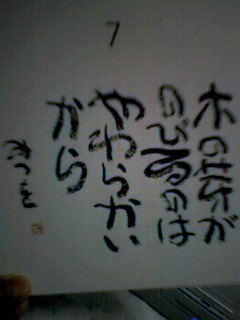 7
木の芽が
のびるのは
やわらかい
から
みつを